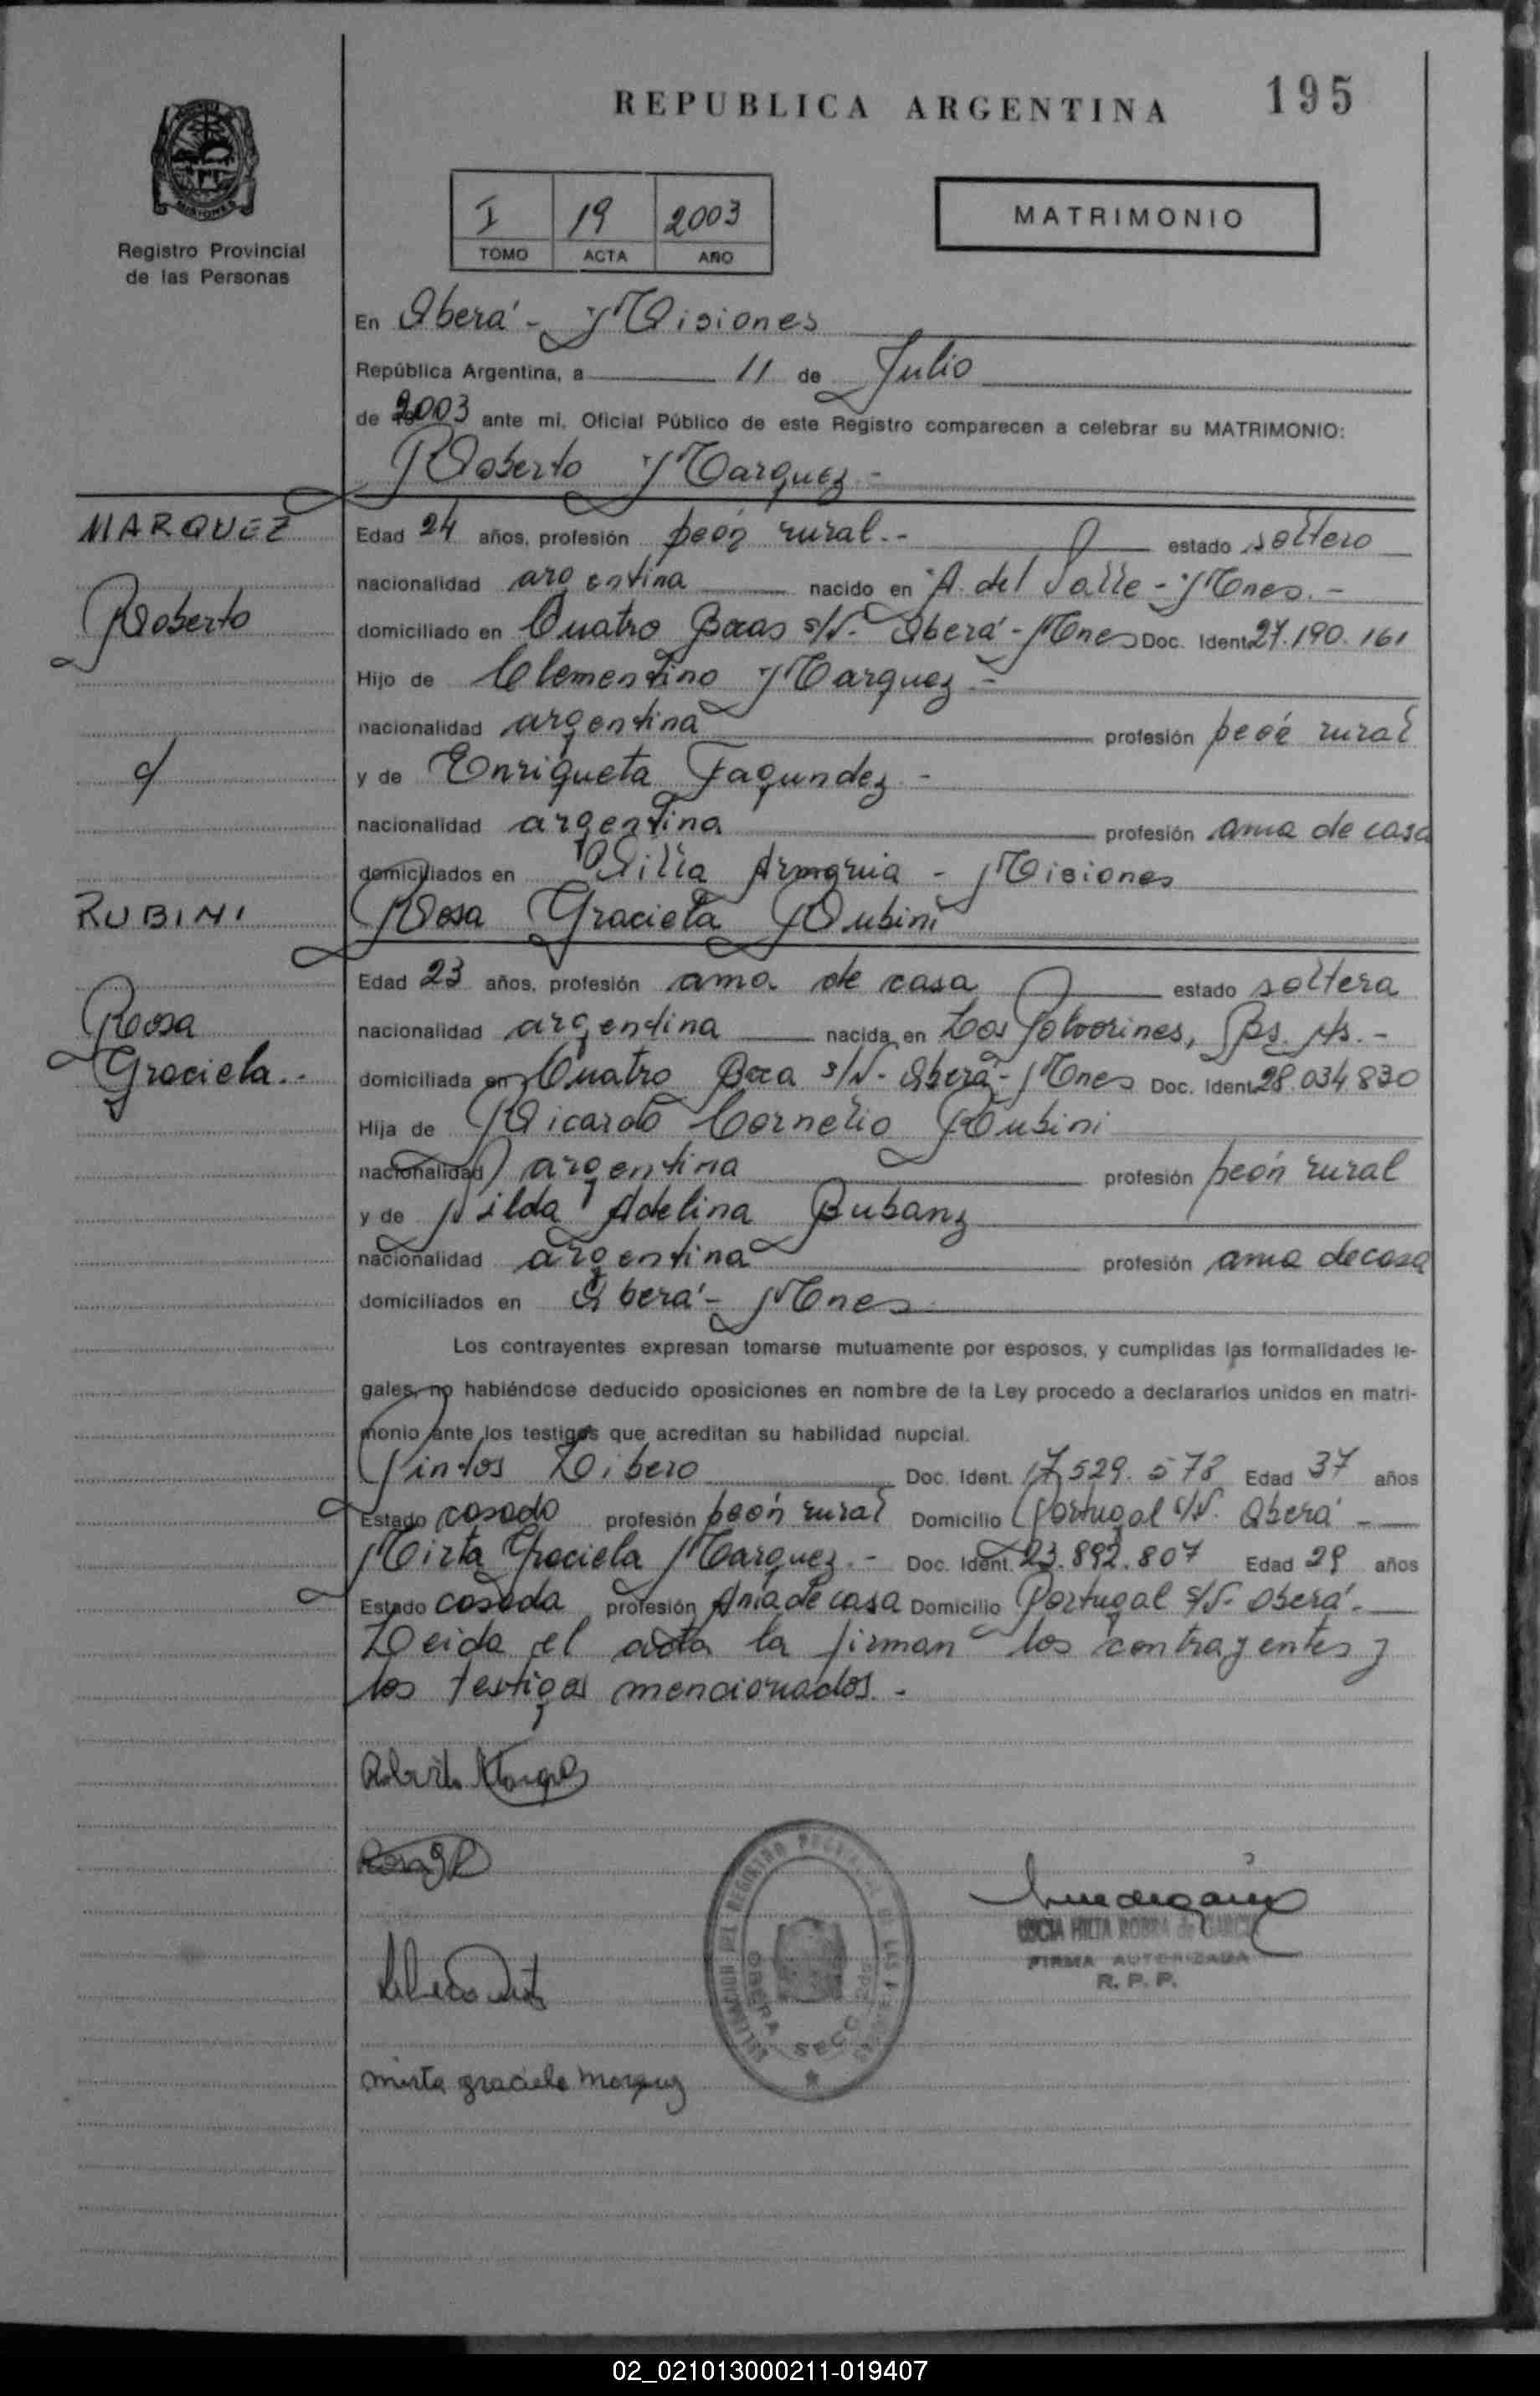 REPUBLICA ARGENTINA 195
Registro Provincial
de las Personas
MISIONES
I 19 2003
TOMO ACTA AÑO
MATRIMONIO
En Oberá - Misiones
República Argentina, a 11 de Julio
de 2003 ante mi, Oficial Público de este Registro comparecen a celebrar su MATRIMONIO:
Roberto Marquez -
MARQUEZ
Edad 24 años, profesión peón rural.- estado soltero
nacionalidad argentina nacido en A. del Valle - Mnes.-
Roberto
domiciliado en Cuatro Bocas s/N- Oberá - Mnes Doc. Ident. 27.190.161
Hijo de Clementino Marquez -
nacionalidad argentina profesión peón rural
c/
y de Enriqueta Fagundez -
nacionalidad argentina profesión ama de casa
domiciliados en Villa Armonia - Misiones
RUBINI
Rosa Graciela Rubini
Edad 23 años, profesión ama de casa estado soltera
Rosa
nacionalidad argentina nacida en Los Polvorines, Bs. As. -
Graciela.-
domiciliada en Cuatro Boca s/N- Oberá - Mnes Doc. Ident. 28.034.830
Hija de Ricardo Cornelio Rubini
nacionalidad argentina profesión peón rural
y de Nilda Adelina Bubanz
nacionalidad argentina profesión ama de casa
domiciliados en Oberá - Mnes
Los contrayentes expresan tomarse mutuamente por esposos, y cumplidas las formalidades le-
gales, no habiéndose deducido oposiciones en nombre de la Ley procedo a declararlos unidos en matri-
monio ante los testigos que acreditan su habilidad nupcial.
Pintos Libero Doc. Ident. 17.529.578 Edad 37 años
Estado casado profesión peón rural Domicilio Portugal s/N. Oberá -
Mirta Graciela Marquez.- Doc. Ident. 23.892.807 Edad 29 años
Estado casada profesión Ama de casa Domicilio Portugal s/N- Oberá.
Leida el acta la firman los contrayentes y
los testigos mencionados.-
Roberto Marquez
mirta graciela marquez
OBERA SECC
FIRMA AUTORIZADA
R. P. P.
02_021013000211-019407